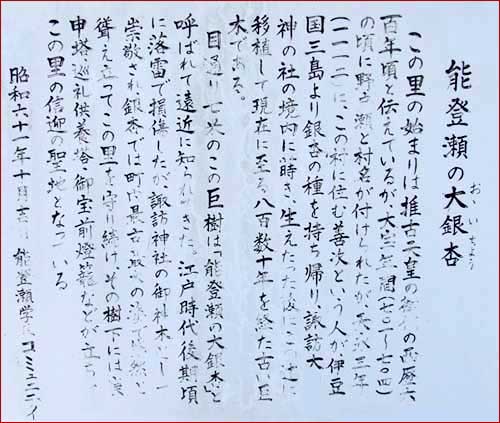 能登瀬の大銀杏
おいちょう
この里の始まりは推古天皇の御代の西暦六
百年頃と伝えているが、大宝年間(七〇一〜七〇四)
の頃に野登瀬と村名が付けられたが、三年
(一一一二)に、この村に住む善次という人が、伊豆
国三島より銀杏の種を持ち帰り、諏訪大
神の社の境内に蒔き、生えたった後にこの地に
移植して現在に至る。八百数十年を経た古い巨
木である。
目通り七米のこの巨樹は「能登瀬の大銀杏」と
呼ばれて遠近に知られてきた。江戸時代後期頃
に落雷で損傷したが、諏訪神社の御神木として
崇敬され銀杏では町内最古最大の姿で悠然と
聳え立ってこの里を守り続け、その樹下には庚
申塔、巡礼供養塔、御宝前燈籠などが立ち、
この里の信迎の聖地となっている
昭和六十一年十月吉日 能登瀬学区コミュニティ